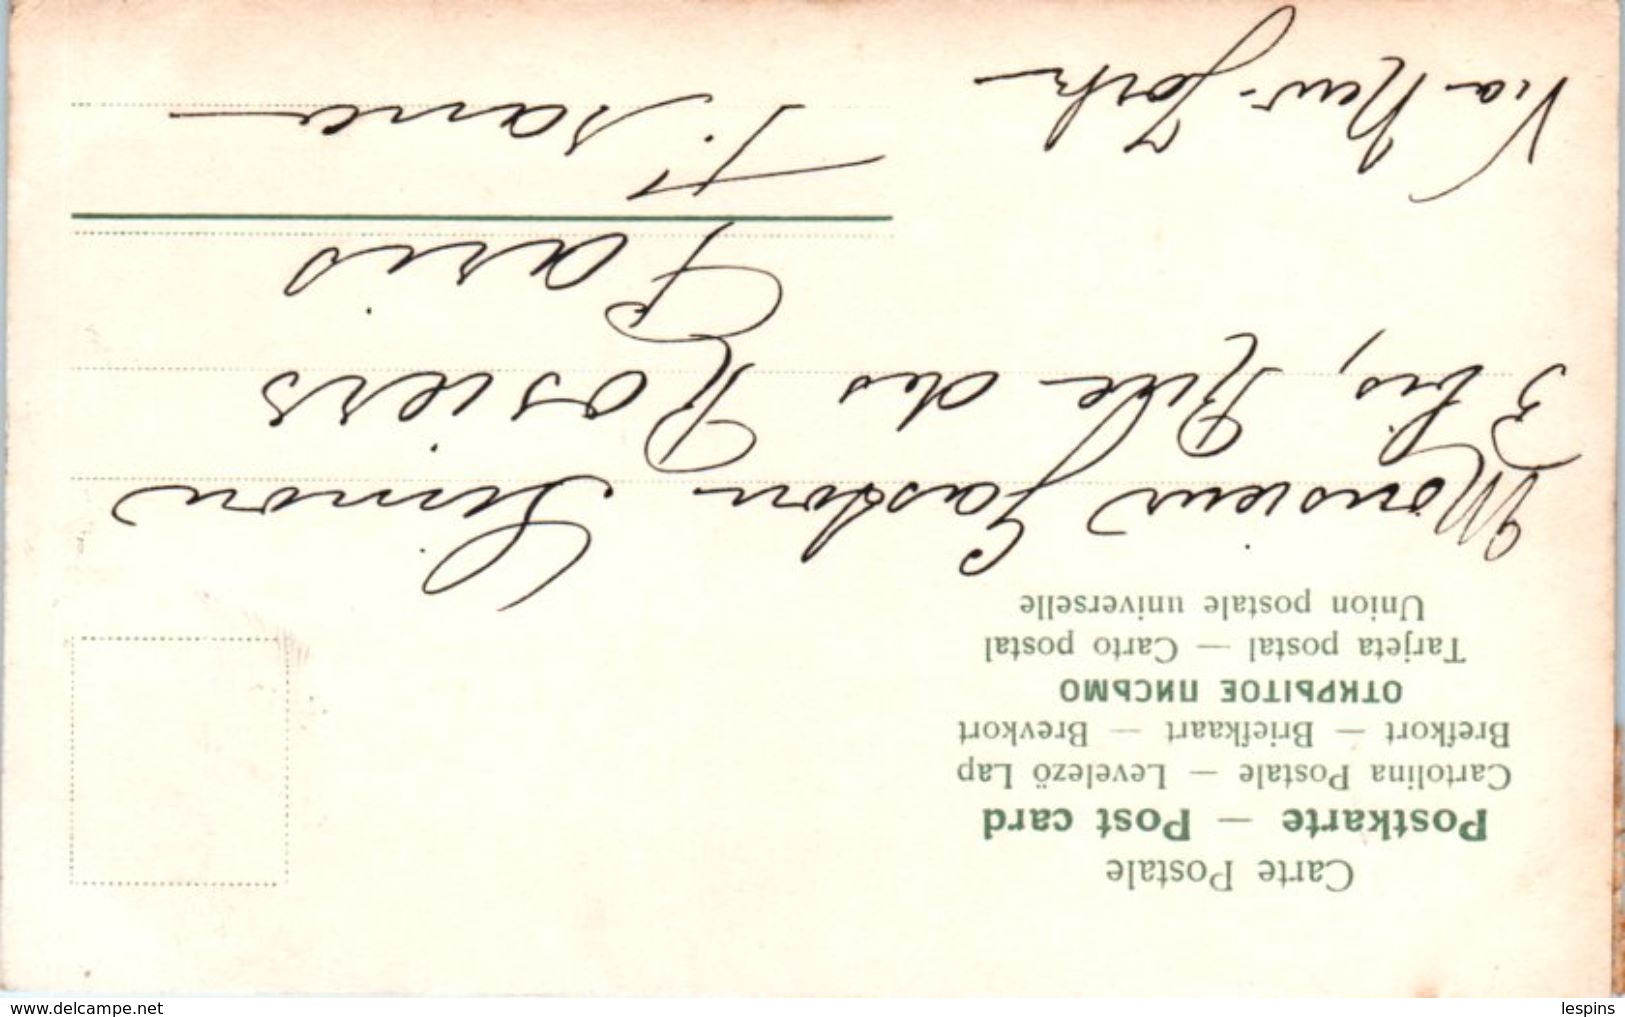 Carte Postale
Postkarte — Post card
Cartolina Postale — Levelező Lap
Brefkort — Briefkaart — Brevkort
ОТКРЫТОЕ ПИСЬМО
Tarjeta postal — Carto postal
Union postale universelle
Monsieur Gaston Simon
3 bis, Rue des Rosiers
Paris
France
Via New-York
www.delcampe.net
lespins